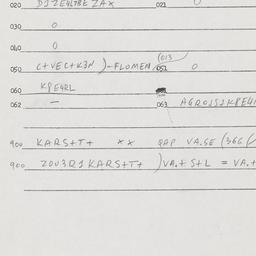 020 DJZE4LTBE ZAX 021 0
030 0
040 0
050 C+VEC+K3N )-FLOMEN (013 051 0
060 KPE4RL
062 — 063 AGROJSJKPE4
900 KARS+T+ XX QAP VA.SE (366
900 ZOU3RJ KARS+T+ ) VA.+ S+L = VA.+